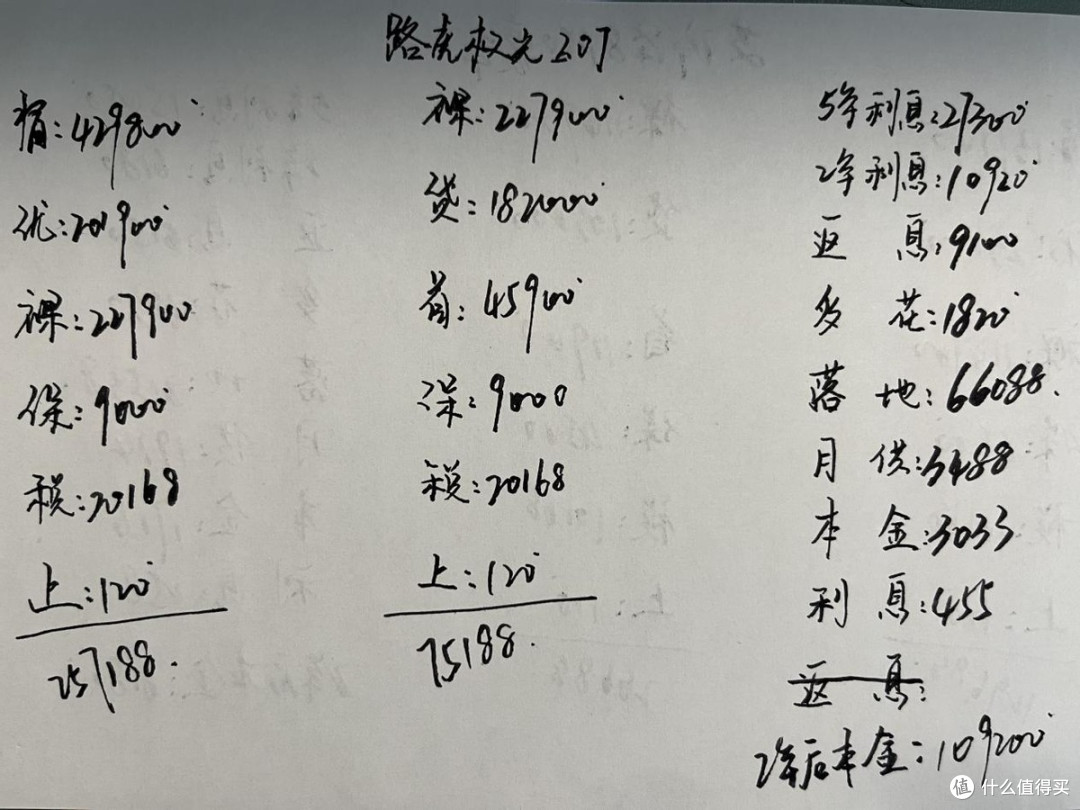 路虎极光207
指:429800
优:201900
裸:227900
保:9000
税:20168
上:120
257188.
裸:227900
贷:182000
首:45900
保:9000
税:20168
上:120
75188.
5年利息:27300
2年利息:10920
返息:9100
多花:1820
落地:66088.
月供:3488
本金:3033
利息:455
返息:
2年后本金:109200
值 什么值得买